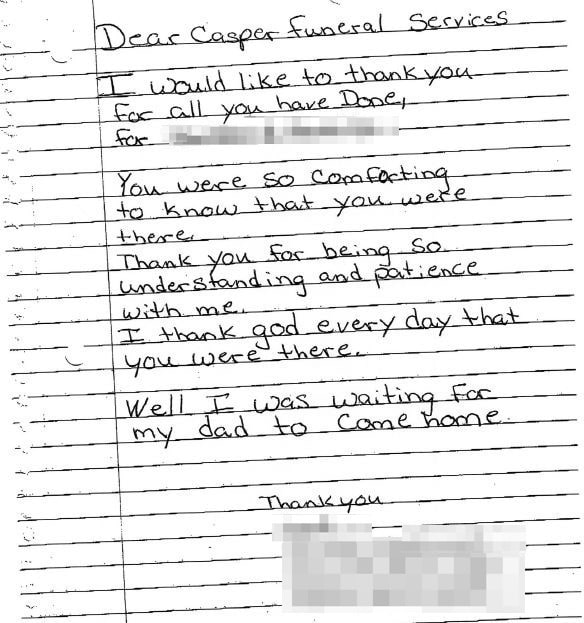 Dear Casper Funeral Services
I would like to thank you
for all you have Done,
for
You were so comforting
to know that you were
there.
Thank you for being so
understanding and patience
with me.
I thank god every day that
you were there.
Well I was waiting for
my dad to come home.
Thank you